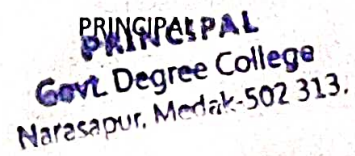 PRINCIPAL
PRINCIPAL
Govt. Degree College
Narasapur, Medak-502 313.